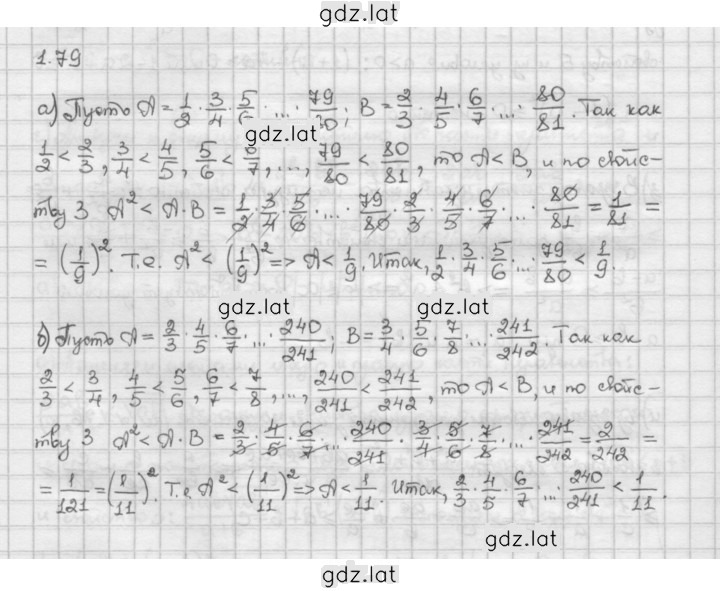 gdz.lat
1.79
а) Пусть A = 1/2 · 3/4 · 5/6 · ... · 79/80; B = 2/3 · 4/5 · 6/7 · ... · 80/81. Так как
gdz.lat
1/2 < 2/3, 3/4 < 4/5, 5/6 < 6/7, ..., 79/80 < 80/81, то A < B, и по свойс-
тву 3 A² < A · B = 1/2 · 3/4 · 5/6 · ... · 79/80 · 2/3 · 4/5 · 6/7 · ... · 80/81 = 1/81 =
= (1/9)². Т.е. A² < (1/9)² => A < 1/9. Итак, 1/2 · 3/4 · 5/6 · ... · 79/80 < 1/9.
gdz.lat gdz.lat
б) Пусть A = 2/3 · 4/5 · 6/7 · ... · 240/241; B = 3/4 · 5/6 · 7/8 · ... · 241/242. Так как
2/3 < 3/4, 4/5 < 5/6, 6/7 < 7/8, ..., 240/241 < 241/242, то A < B, и по свойс-
тву 3 A² < A · B = 2/3 · 4/5 · 6/7 · ... · 240/241 · 3/4 · 5/6 · 7/8 · ... · 241/242 = 2/242 =
= 1/121 = (1/11)². Т.е. A² < (1/11)² => A < 1/11. Итак, 2/3 · 4/5 · 6/7 · ... · 240/241 < 1/11.
gdz.lat
gdz.lat